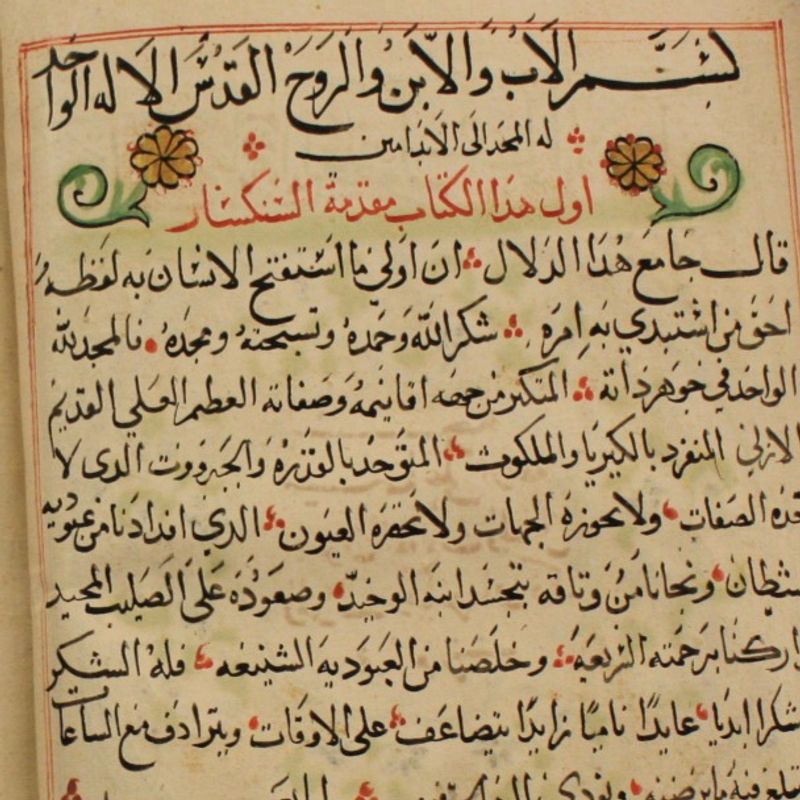 بسم الاب والابن والروح القدس الاله الواحد
له المجد الى الابد امين
اول هذا الكتاب مقدمة السنكسار
قال جامع هذا الدلال ان اولي ما استفتح الانسان به لفظه
احق من اشتبدي به امره شكر الله وحمده وتسبحته ومجده فالمجد لله
الواحد في جوهر داته المتكبر من جهه اقانيمه وصفاته العظيم العلي القديم
الازلي المنفرد بالكبريا والملكوت المتوحد بالقدره والجبروت الدى لا
الصفات ولا تحوزه الجهات ولا تحقره العيون الدي افدادنا من عبوديه
ونجانا من وتاقه بتجسد ابنه الوحيد وصعوده على الصليب المجيد
برحمته السريعه وخلصنا من العبوديه الشنيعه فله الشكر
شكرا ابديا عايدا ناميا زايدا يتضاعف على الاوقات ويترادف مع الساعات